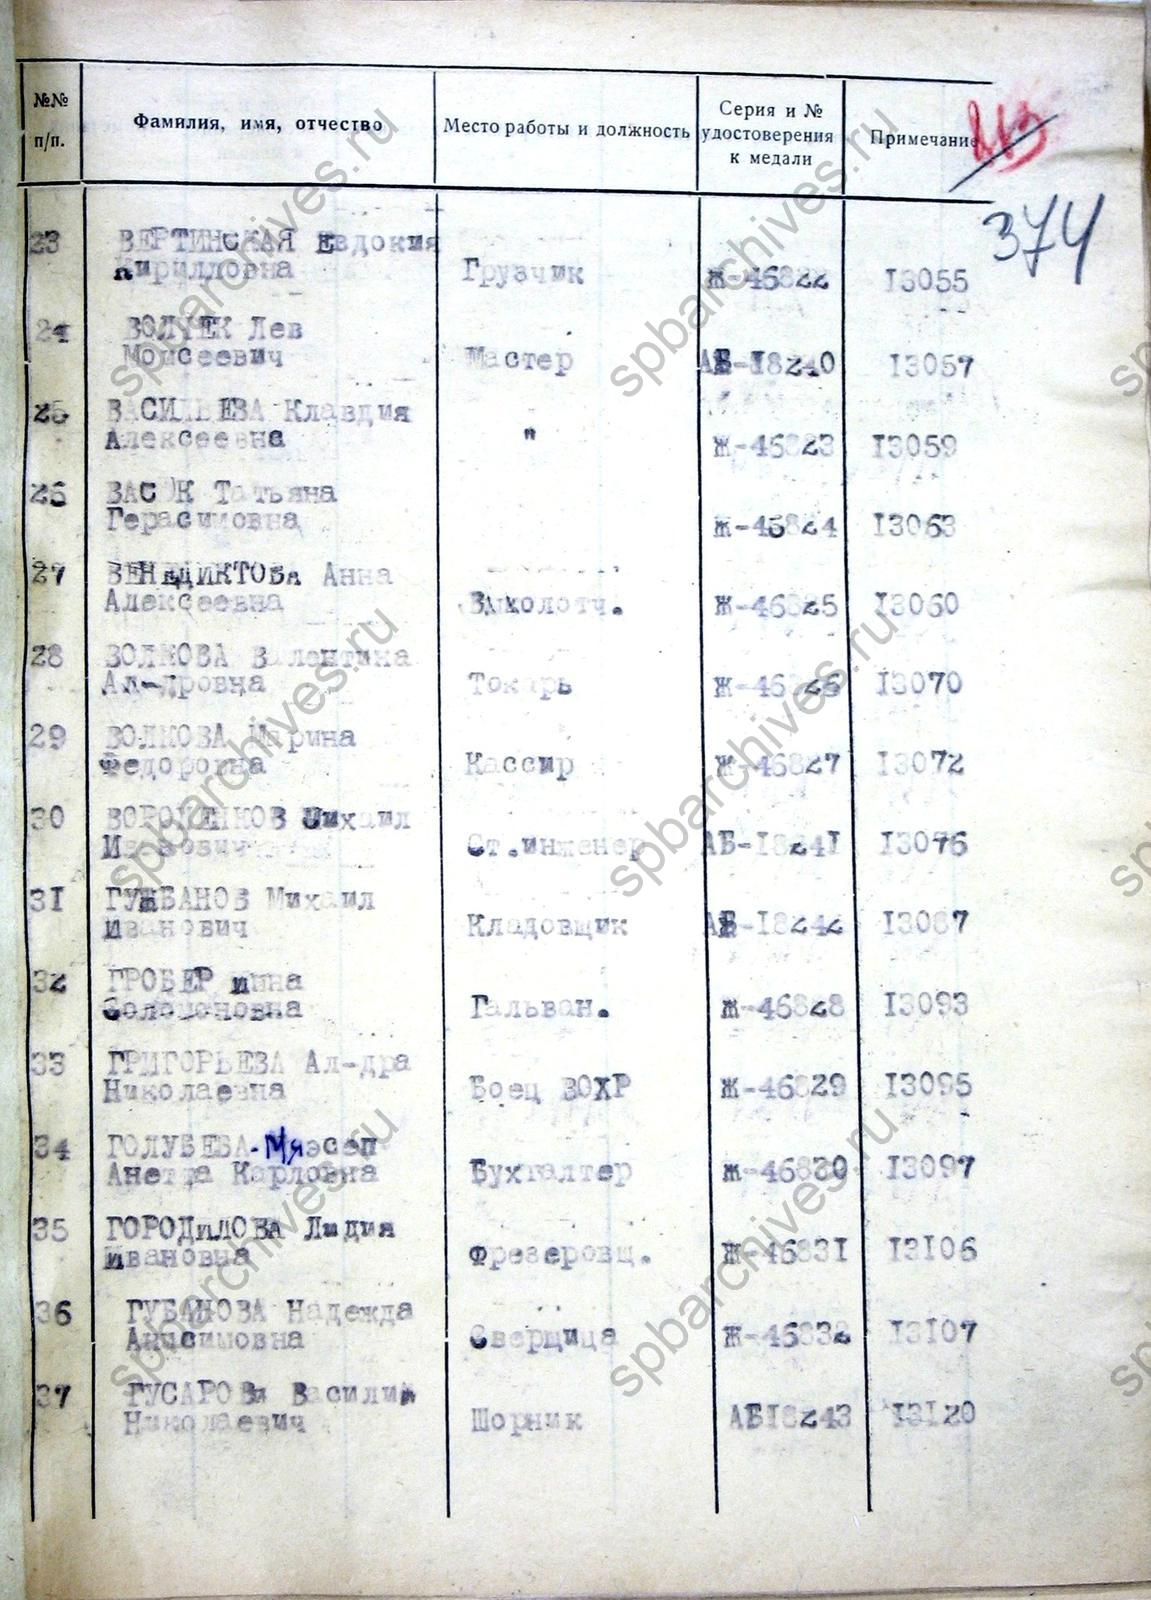 №№
п/п.
Фамилия, имя, отчество
Место работы и должность
Серия и №
удостоверения
к медали
Примечание
213
374
23 ВЕРТИНСКАЯ Евдокия
Кирилловна Грузчик Ж-46822 13055
24 Лев
Моисеевич Мастер АБ-18240 13057
25 ВАСИЛЬЕВА Клавдия
Алексеевна " Ж-46823 13059
26 Татьяна
Герасимовна Ж-46824 13063
27 ВЕНЕДИКТОВА Анна
Алексеевна Выколотч. Ж-46825 13060
28 ВОЛКОВА Валентина
Ал-дровна Токарь Ж-46826 13070
29 ВОЛКОВА Марина
Федоровна Кассир Ж-46827 13072
30 ВОРОНЕНКОВ Михаил
Иванович Ст.инженер АБ-18241 13076
31 ГУЖБАНОВ Михаил
Иванович Кладовщик АБ-18242 13087
32 ГРОБЕР
Соломоновна Гальван. Ж-46828 13093
33 ГРИГОРЬЕВА Ал-дра
Николаевна Боец ВОХР Ж-46829 13095
34 ГОЛУБЕВА-Мяэсеп
Анетта Карловна Бухгалтер Ж-46830 13097
35 ГОРОДИЛОВА Лидия
Ивановна Фрезеровщ. Ж-46831 13106
36 ГУБАНОВА Надежда
Анисимовна Сверщица Ж-46832 13107
37 Василий
Николаевич Шорник АБ18243 13120
spbarchives.ru
spbarchives.ru
spbarchives.ru
spbarchives.ru
spbarchives.ru
spbarchives.ru